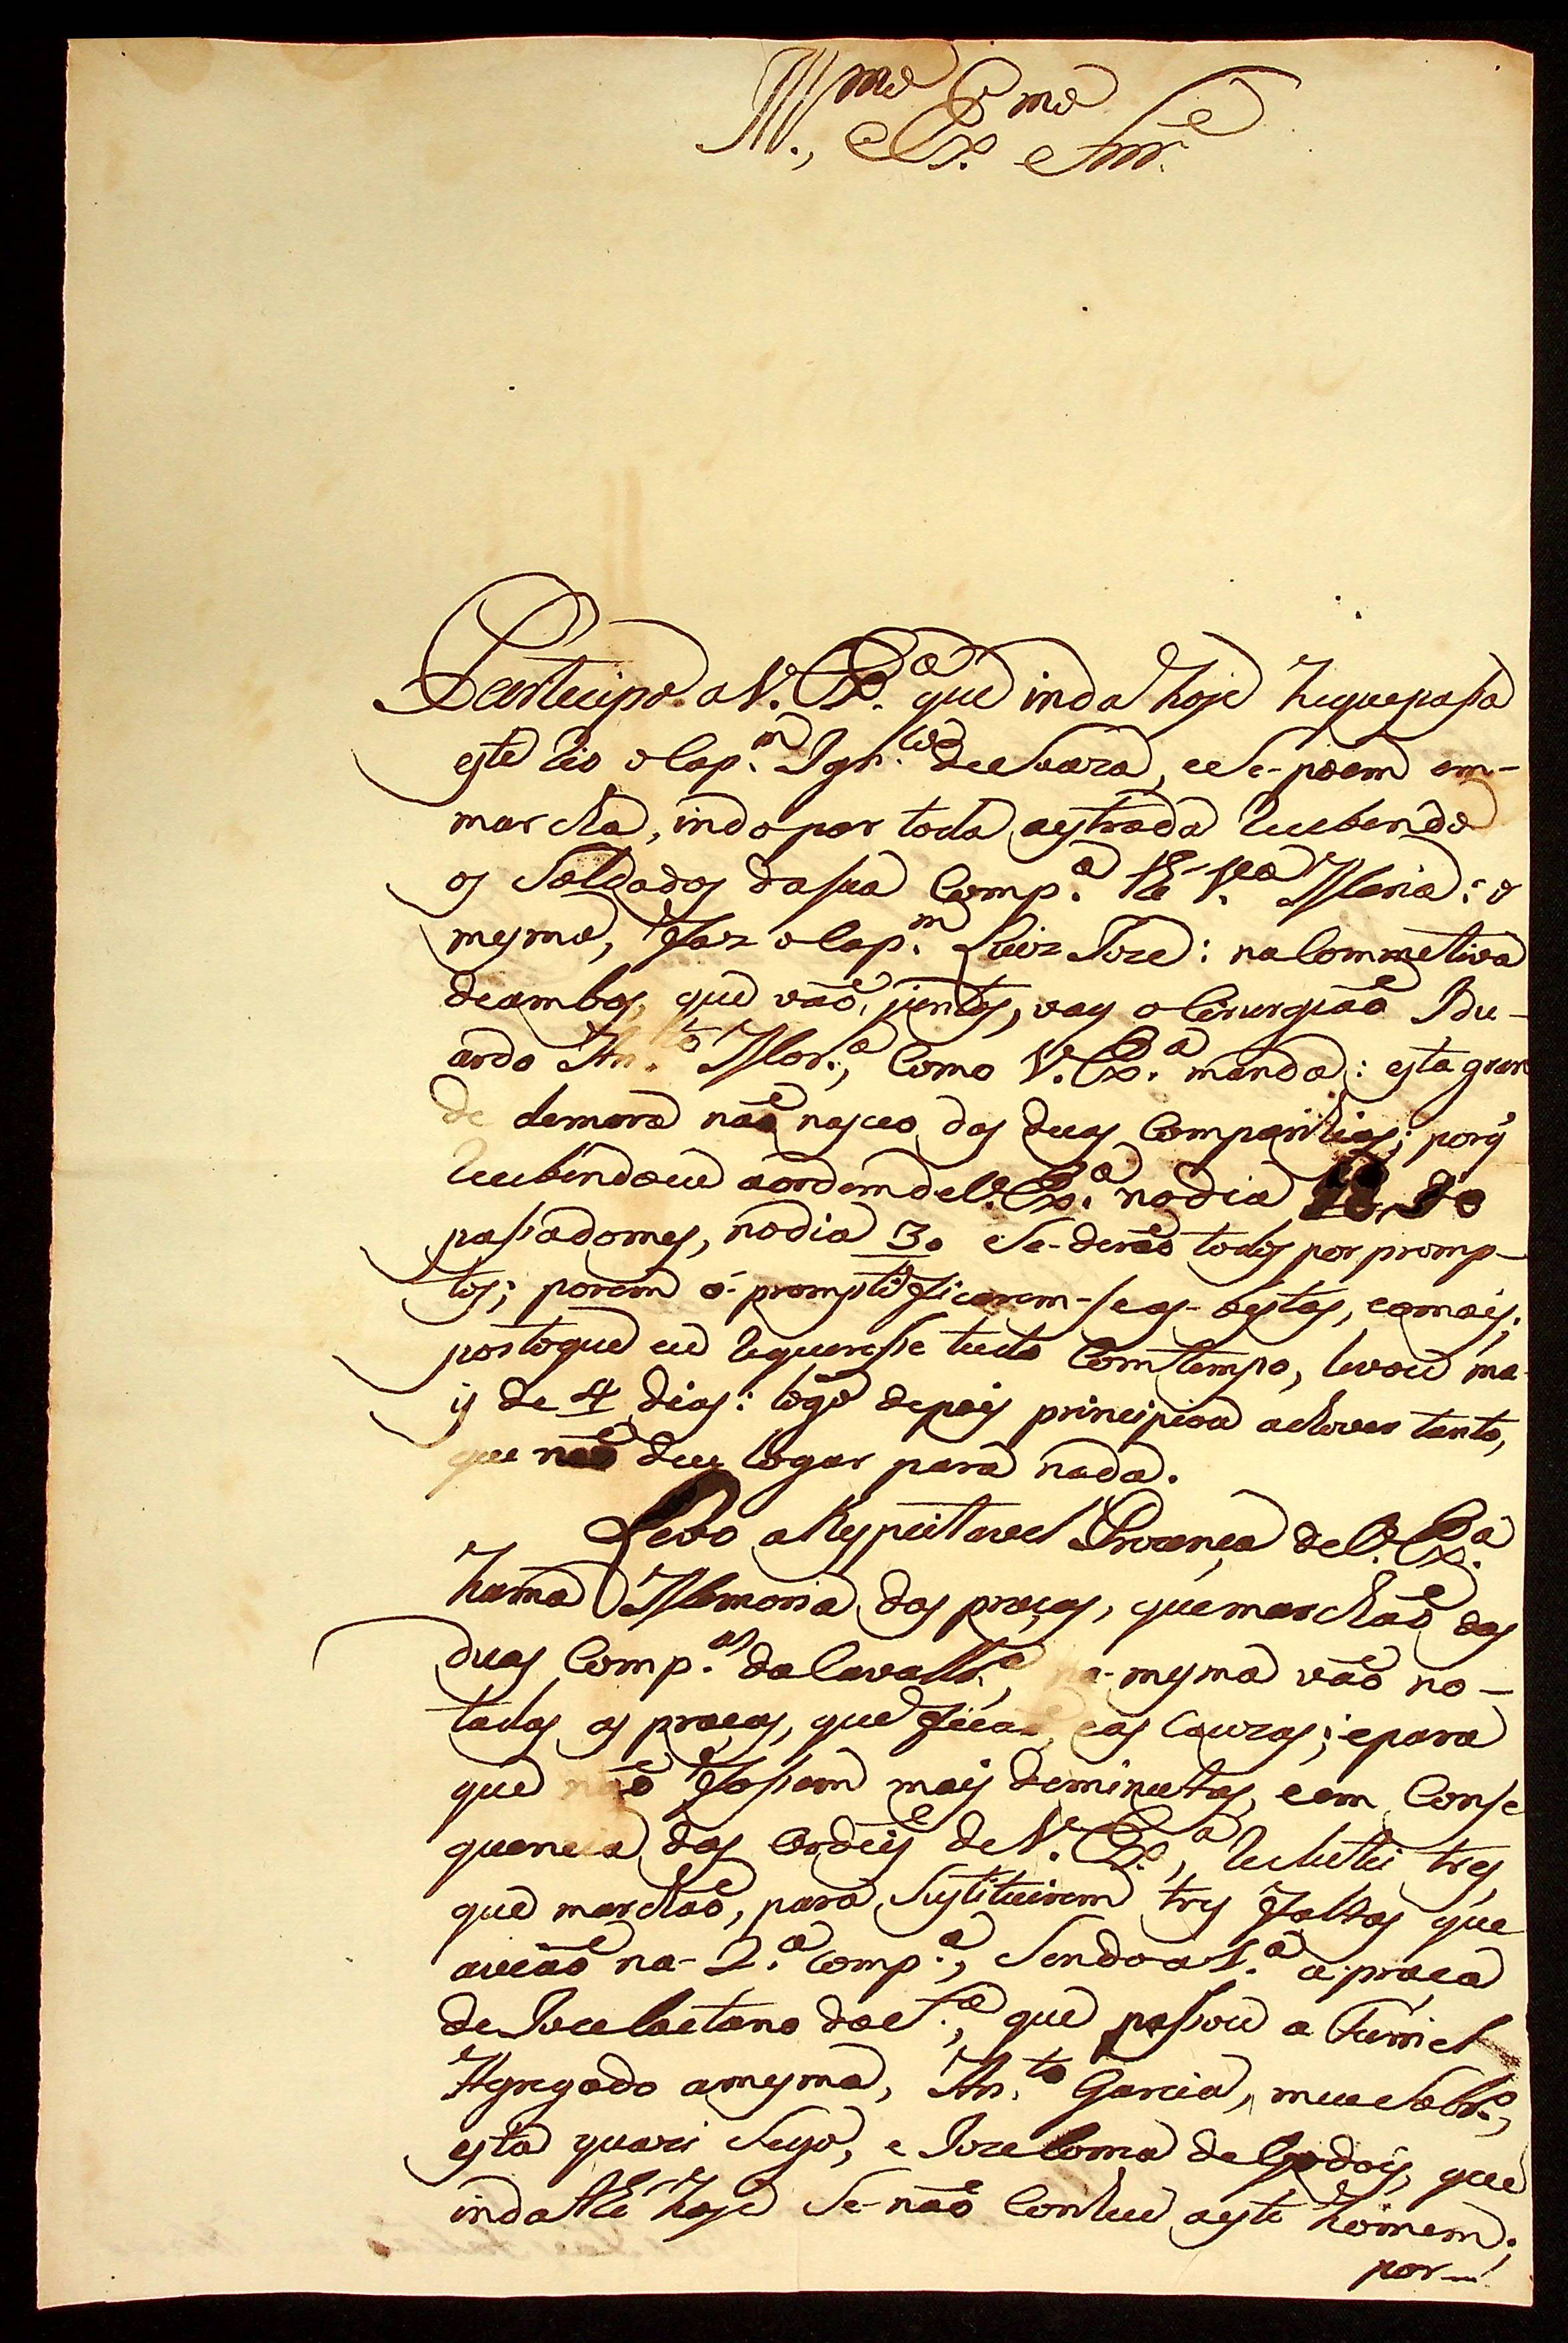 Ill.mo Ex.mo Snr.e
Partecipo a V. Ex.a que inda hoje he que pasa
este Rio o Cap.m Ign.cio de Souza, e se-poem em-
marcha, indo por toda aestrada recebendo
os Soldados da sua Comp.a the V.a Maria: o
mesmo, faz o Cap.m Luiz Joze: na Commetiva
de ambos, que vaõ juntos, vay o Cirurgiaõ Edu-
ardo An.to Mor.a, Como V. Ex.a manda: esta gran
de demora naõ nasceo das duas Companhias; porq̃
recebendo eu a ordem de V. Ex.a no dia do
pasado mes, no dia 30 se-deraõ todos por promp-
tos; porem o-promptificarem-se as-bestas, e o mais,
posto que eu requeresse tudo Com tempo, levou ma-
is de 4 dias: logo depois principiou a chover tanto,
que naõ deu lugar para nada.
Levo a Respeitavel Prezença de V. Ex.a
huma Memoria das praças, que marchaõ das
duas Comp.as da Cavall.a, na-mesma vaõ no-
tadas as praças, que ficaõ, e as Cauzas; e para
que naõ fossem mais deminutas, e em Conse
quencia das Ordeñs de V. Ex.a, reclutei tres,
que marchaõ, para Sustituirem tres faltas que
aviaõ na-2.a Comp.a, Sendo a 1.a a praça
de Joze Caetano da S.a, que passou a Furriel
Agregado a mesma, An.to Garcia, meu Sobr.o,
esta quazi Sego, e Joze Coma de Godois, que
inda the hoje Se-naõ Conhece este homem;
por-